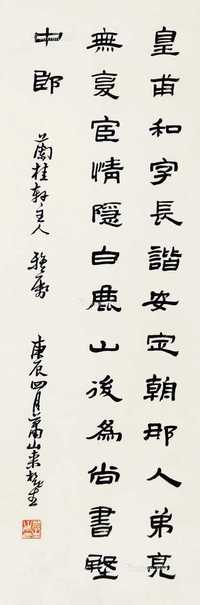 皇甫和字長諧安定朝那人弟亮
無复宦情隱白鹿山後為尚書殿
中郎
蘭桂軒主人 雅屬 庚辰四月蕭山來楚生